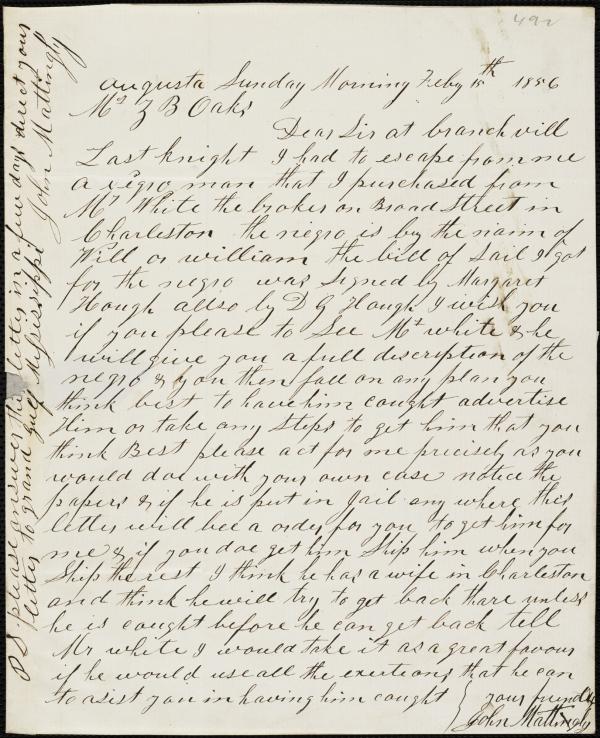 492
Augusta Sunday Morning Feby 15th 1856
Mr Z B Oaks
Dear Sir at branchvill
Last knight I had to escape from me
a negro man that I purchased from
Mr White the broker on Broad Street in
Charleston the negro is by the naim of
Will or william the bill of Sail I got
for the negro was Signed by Margaret
Hough allso by D G Hough I wish you
if you please to See Mr white & he
will give you a full discription of the
negro & you then fall on any plan you
think best to have him caught advertise
Him or take any Steps to get him that you
think Best please act for me precisely as you
would doe with your own case notice the
papers & if he is put in Jail any where this
letter will bee a order for you to get him for
me & if you doe get him Ship him when you
Ship the rest I think he has a wife in Charleston
and think he will try to get back thare unless
he is caught before he can get back tell
Mr white I would take it as a great favour
if he would use all the exertions that he can
to asist you in having him caught your friend
John Mattingly
PS please answer this letter in a few days direct your
letter to grand gulf Mississippi John Mattingly